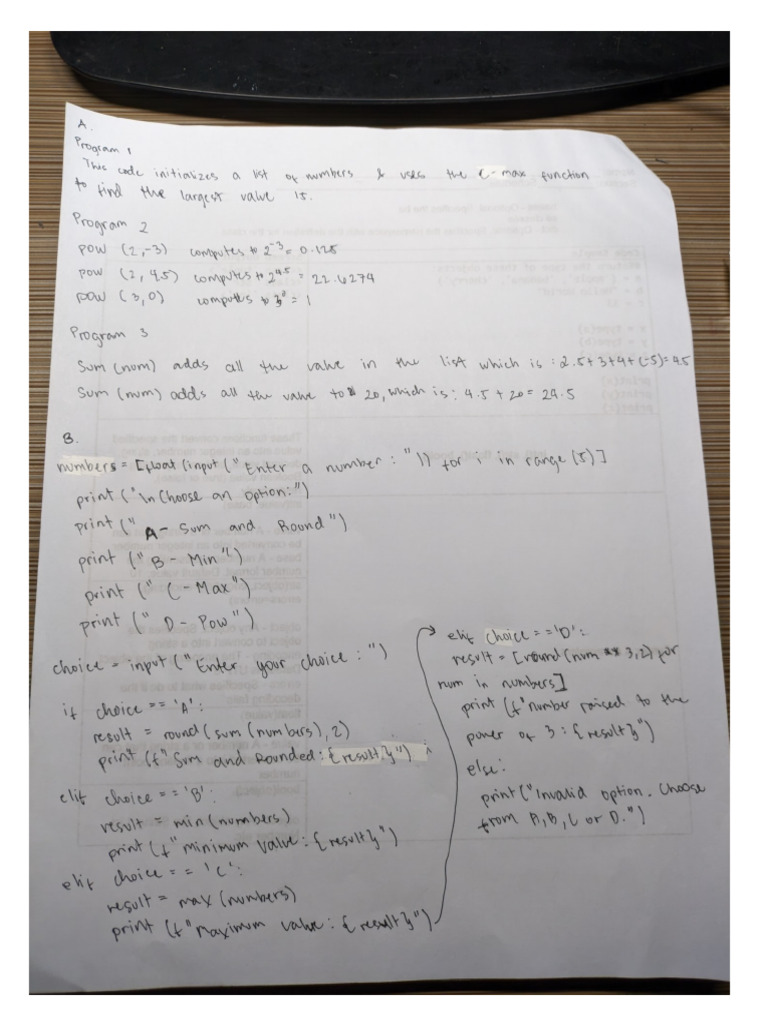 A.
Program 1
This code initializes a list of numbers & uses the C-max function
to find the largest value 15.
Program 2
pow (2,-3) computes to 2^-3 = 0.125
pow (2, 4.5) computes to 2^4.5 = 22.6274
pow (3,0) computes to 3^0 = 1
Program 3
Sum (num) adds all the value in the list which is : 2.5+3+4+(-5)=4.5
Sum (num) adds all the value to 20, which is : 4.5 + 20 = 24.5
B.
numbers = [float (input ("Enter a number : ")) for i in range (5)]
print ("\n Choose an option:")
print (" A - Sum and Round")
print ("B - Min")
print (" C - Max")
print (" D - Pow")
choice = input ("Enter your choice : ")
if choice == 'A':
result = round (sum (numbers), 2)
print (f" Sum and Rounded : {result}")
elif choice == 'B':
result = min (numbers)
print (f" minimum value : {result}")
elif choice == 'C':
result = max (numbers)
print (f" maximum value : {result}")
elif choice == 'D':
result = [round (num ** 3,2) for
num in numbers]
print (f" number raised to the
power of 3 : {result}")
else:
print ("Invalid option. Choose
from A, B, C or D.")